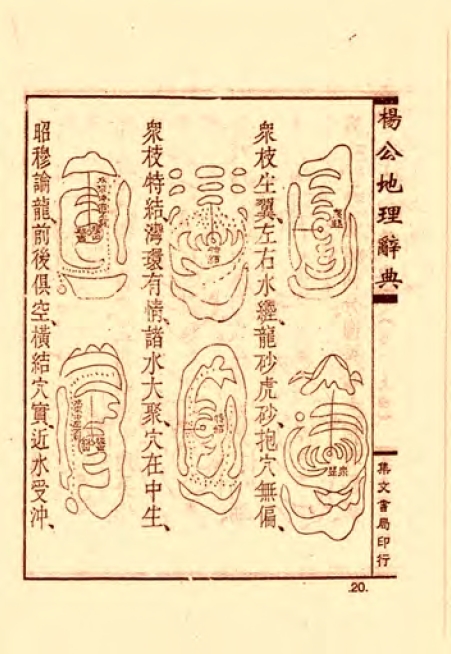 楊公地理辭典
集文書局印行
衆枝坐翼、左右水纒、龍砂虎砂、抱穴無偏、
衆枝特結、灣環有情、諸水大聚、穴在中生、
昭穆論龍、前後俱空、橫結穴實、近水受沖、
.20.